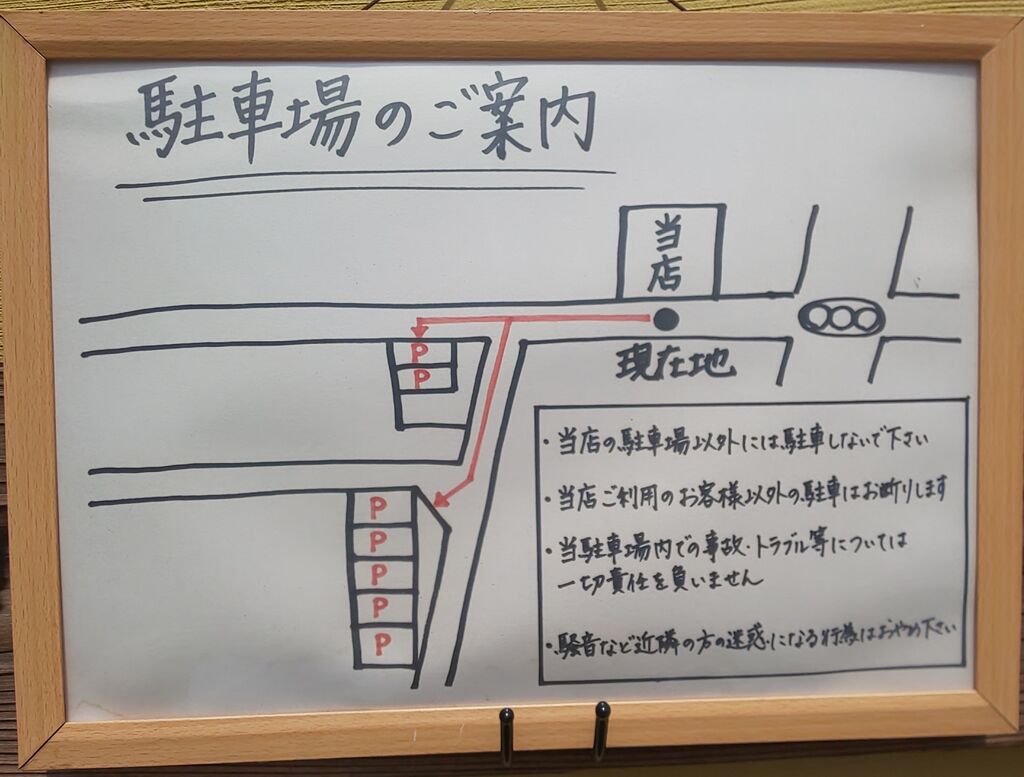 駐車場のご案内
当店
現在地
P
P
P
P
P
P
P
・当店の駐車場以外には駐車しないで下さい
・当店ご利用のお客様以外の駐車はお断りします
・当駐車場内での事故・トラブル等については
一切責任を負いません
・騒音など近隣の方の迷惑になる行為はおやめ下さい